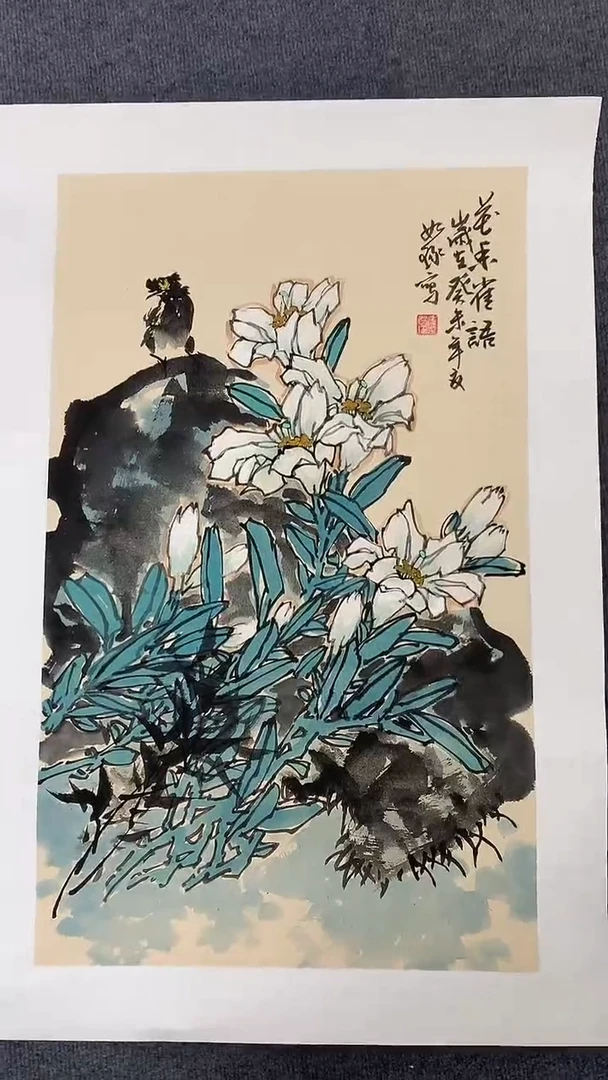 花香雀語
歲在癸未年夏
如
寫